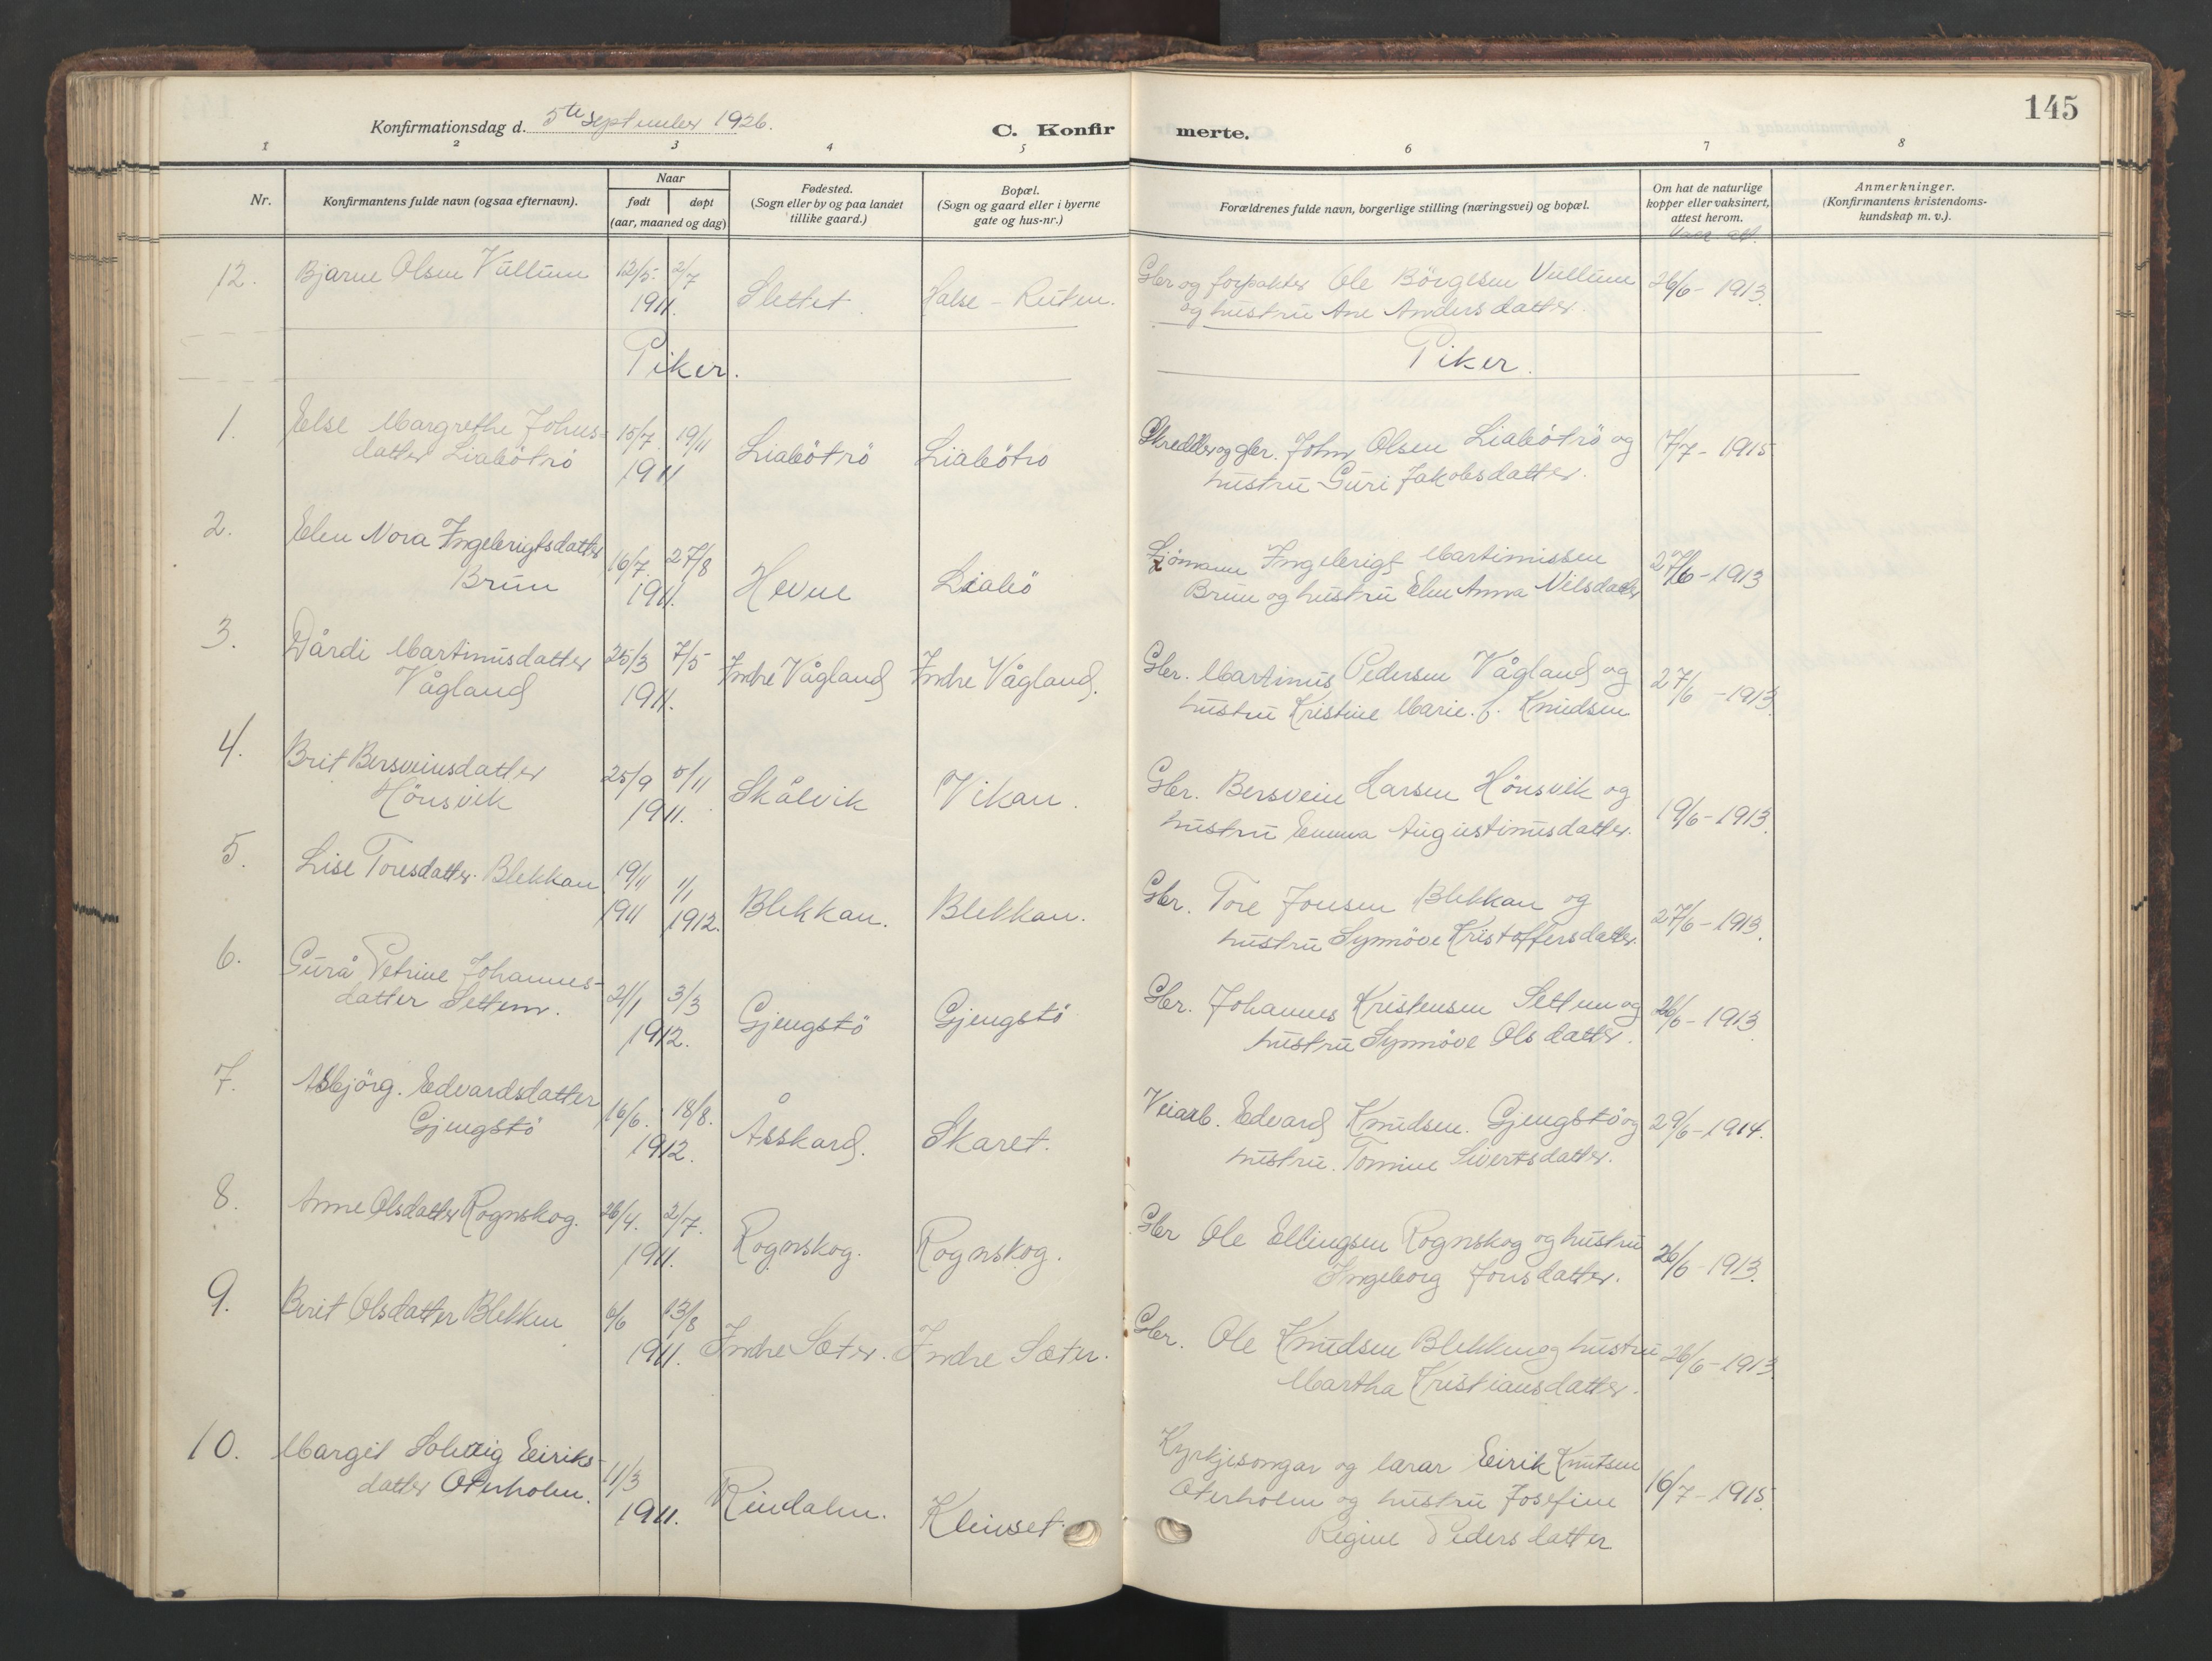 145
Konfirmationsdag d. 5te september 1926.
C. Konfir merte.
1 2 3 4 5 6 7 8
Nr.
Konfirmantens fulde navn (ogsaa efternavn).
Naar
født døpt
(aar, maaned og dag)
Fødested.
(Sogn eller by og paa landet
tillike gaard.)
Bopæl.
(Sogn og gaard eller i byerne
gate og hus-nr.)
Forældrenes fulde navn, borgerlige stilling (næringsvei) og bopæl.
Om hat de naturlige
kopper eller vaksinert,
attest herom.
Vacc. att.
Anmerkninger.
(Konfirmantens kristendoms-
kundskap m. v.).
12. Bjarne Olsen Vullum 12/5. 2/7
1911. Slettet. Halse - Ruten.
Gbr og forpakter Ole Börgesen Vullum 26/6 - 1913.
og hustru Ane Andersdatter.
Piker. Piker.
1. Else Margrethe Johns-
datter Liabötrö 15/7. 19/11
1911 Liabötrö Liabötro
Skredder og gbr. John Olsen Liabötrö og 17/7 - 1915
hustru Guri Jakobsdatter.
2. Elen Nora Ingebrigtsdatter
Brun 16/7. 27/8
1911. Hevne Liabö
Sjömann Ingebrigt Martinussen 27/6 - 1913
Brun og hustru Elen Anna Nilsdatter
3. Dårdi Martinusdatter
Vågland 25/3 7/5
1911. Indre Vågland Indre Vågland.
Gbr. Martinus Pedersen Vågland og 27/6 - 1913.
hustru Kristine Marie f. Knudsen
4. Brit Bersveinsdatter
Hönsvik 25/9 5/11
1911. Skålvik Vikan.
Gbr. Bersvein Larsen Hönsvik og 19/6 - 1913.
hustru Emma Augustinusdatter.
5. Lise Toresdatter Blekkan 19/11 1/1
1911 1912. Blekkan. Blekkan.
Gbr. Tore Jonsen Blekkan og 27/6 - 1913.
hustru Synnöve Kristoffersdatter.
6. Gurå Petrine Johannes-
datter Settem. 21/1 3/3
1912. Gjengstö Gjengstö
Gbr. Johannes Kristensen Settem og 26/6 - 1913
hustru Synnöve Olsdatter.
7. Asbjörg. Edvardsdatter
Gjengstö 16/6. 18/8.
1912. Åsskard. Skaret.
Veiarb. Edvard Knudsen. Gjengstö og 29/6 - 1914.
hustru. Tomine Sivertsdatter.
8. Anne Olsdatter Rognskog. 26/4. 2/7.
1911. Rognskog. Rognskog.
Gbr Ole Ellingsen Rognskog og hustru 26/6 - 1913.
Ingeborg Jonsdatter.
9. Berit Olsdatter Blekken 6/6 13/8
1911. Indre Sæter. Indre Sæter.
Gbr. Ole Knudsen Blekken og hustru 26/6 - 1913
Martha Kristiansdatter.
10. Margit Solveig Eiriks-
datter Oterholm. 11/3
1911. Rindalen. Kleivset.
Kyrkjesongar og lærar Eirik Knutsen
Oterholm og hustru Josefine 16/7 - 1915.
Regine Pedersdatter